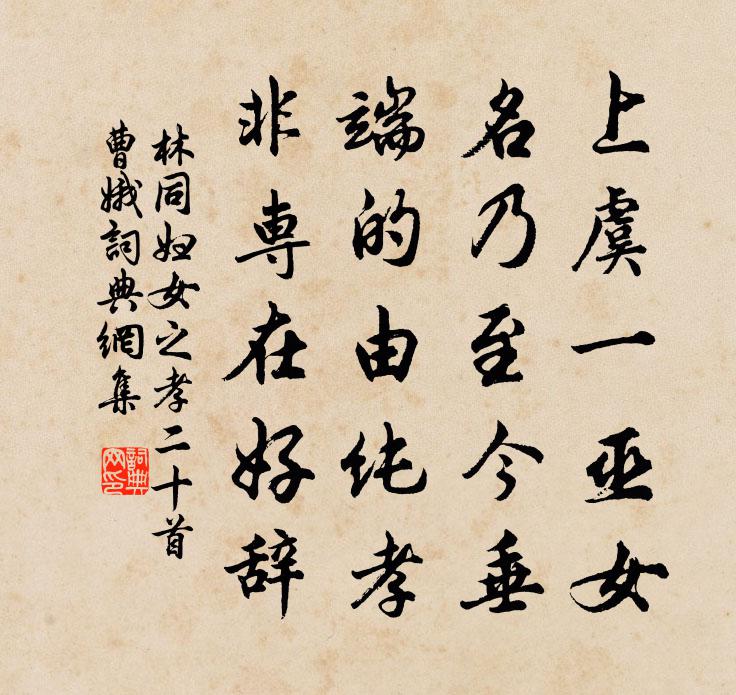 上虞一巫女
名乃至今垂
端的由纯孝
非専在好辞
林同妇女之孝二十首
曹娥詞典網集
詞典网印